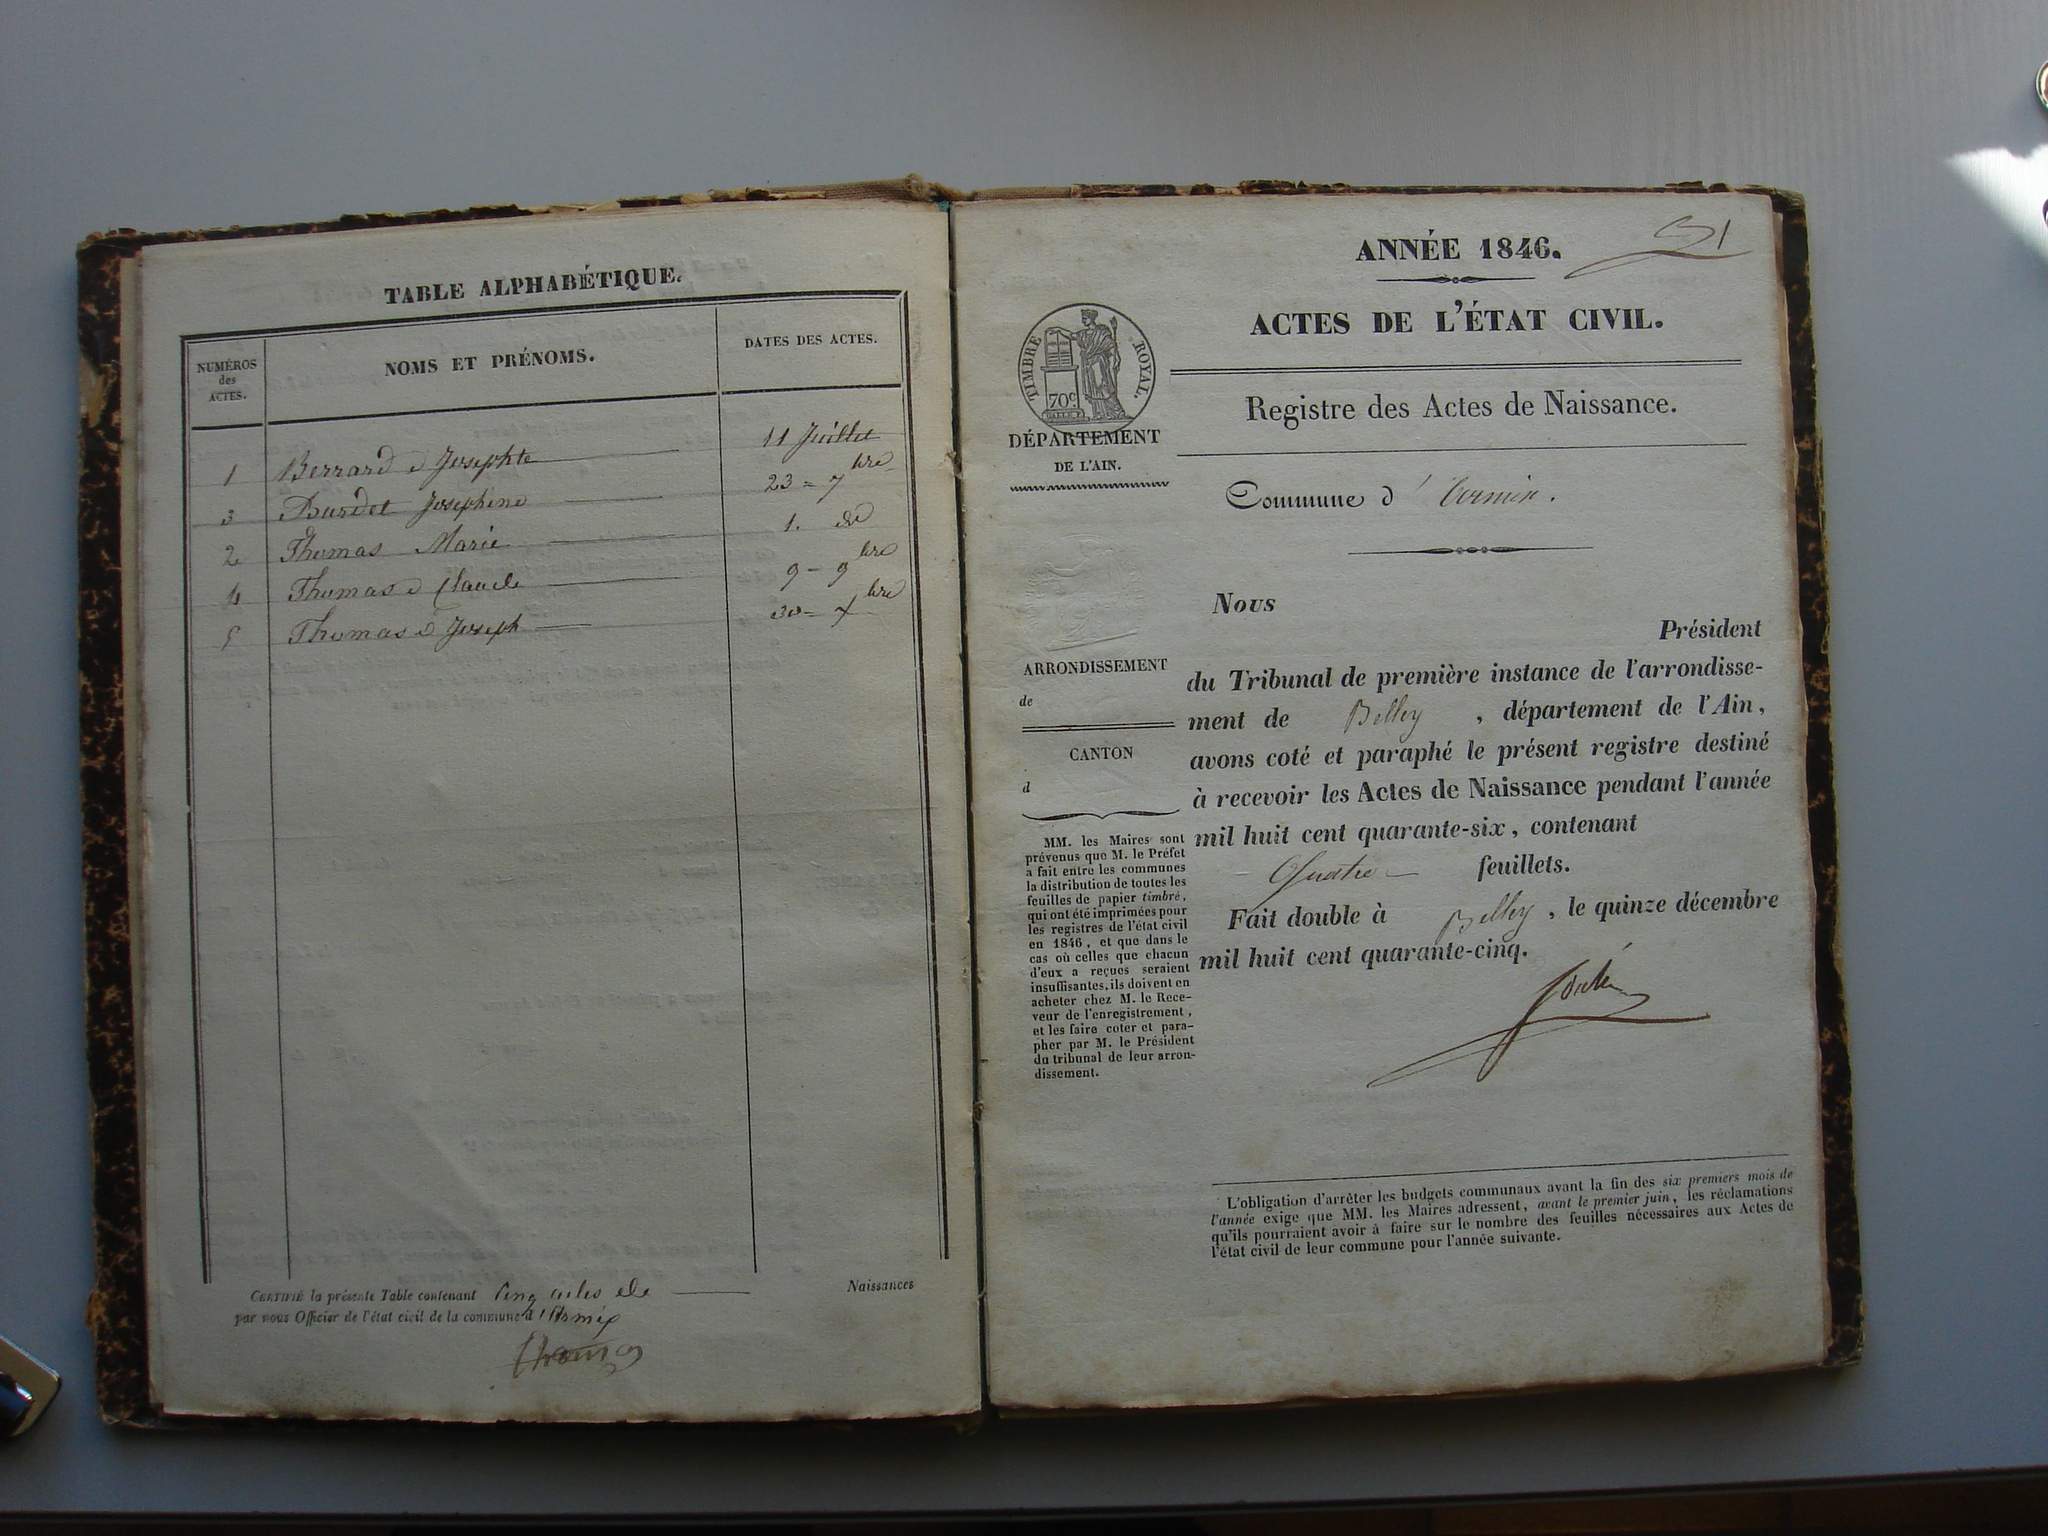 TABLE ALPHABÉTIQUE.
NUMÉROS des ACTES.
NOMS ET PRÉNOMS.
DATES DES ACTES.
1 Berrard Josephte 11 Juillet
3 Burdet Josephine 23 = 7bre
2 Thomas Marie 1. do
4 Thomas Claude 9 - 9bre
5 Thomas Joseph 30 = Xbre
CERTIFIÉ la présente Table contenant Cinq actes de Naissances
par nous Officier de l'état civil de la commune d'Armix
Thomas
ANNÉE 1846.
31
ACTES DE L'ÉTAT CIVIL.
TIMBRE ROYAL.
70c
DÉPARTEMENT
DE L'AIN.
Registre des Actes de Naissance.
Commune d'
ARRONDISSEMENT
de
CANTON
d
MM. les Maires sont
prévenus que M. le Préfet
a fait entre les communes
la distribution de toutes les
feuilles de papier timbré,
qui ont été imprimées pour
les registres de l'état civil
en 1846, et que dans le
cas où celles que chacun
d'eux a reçues seraient
insuffisantes, ils doivent en
acheter chez M. le Rece-
veur de l'enregistrement,
et les faire coter et para-
pher par M. le Président
du tribunal de leur arron-
dissement.
Nous
Président
du Tribunal de première instance de l'arrondisse-
ment de Belley, département de l'Ain,
avons coté et paraphé le présent registre destiné
à recevoir les Actes de Naissance pendant l'année
mil huit cent quarante-six, contenant
Quatre feuillets.
Fait double à Belley, le quinze décembre
mil huit cent quarante-cinq.
L'obligation d'arrêter les budgets communaux avant la fin des six premiers mois de
l'année exige que MM. les Maires adressent, avant le premier juin, les réclamations
qu'ils pourraient avoir à faire sur le nombre des feuilles nécessaires aux Actes de
l'état civil de leur commune pour l'année suivante.